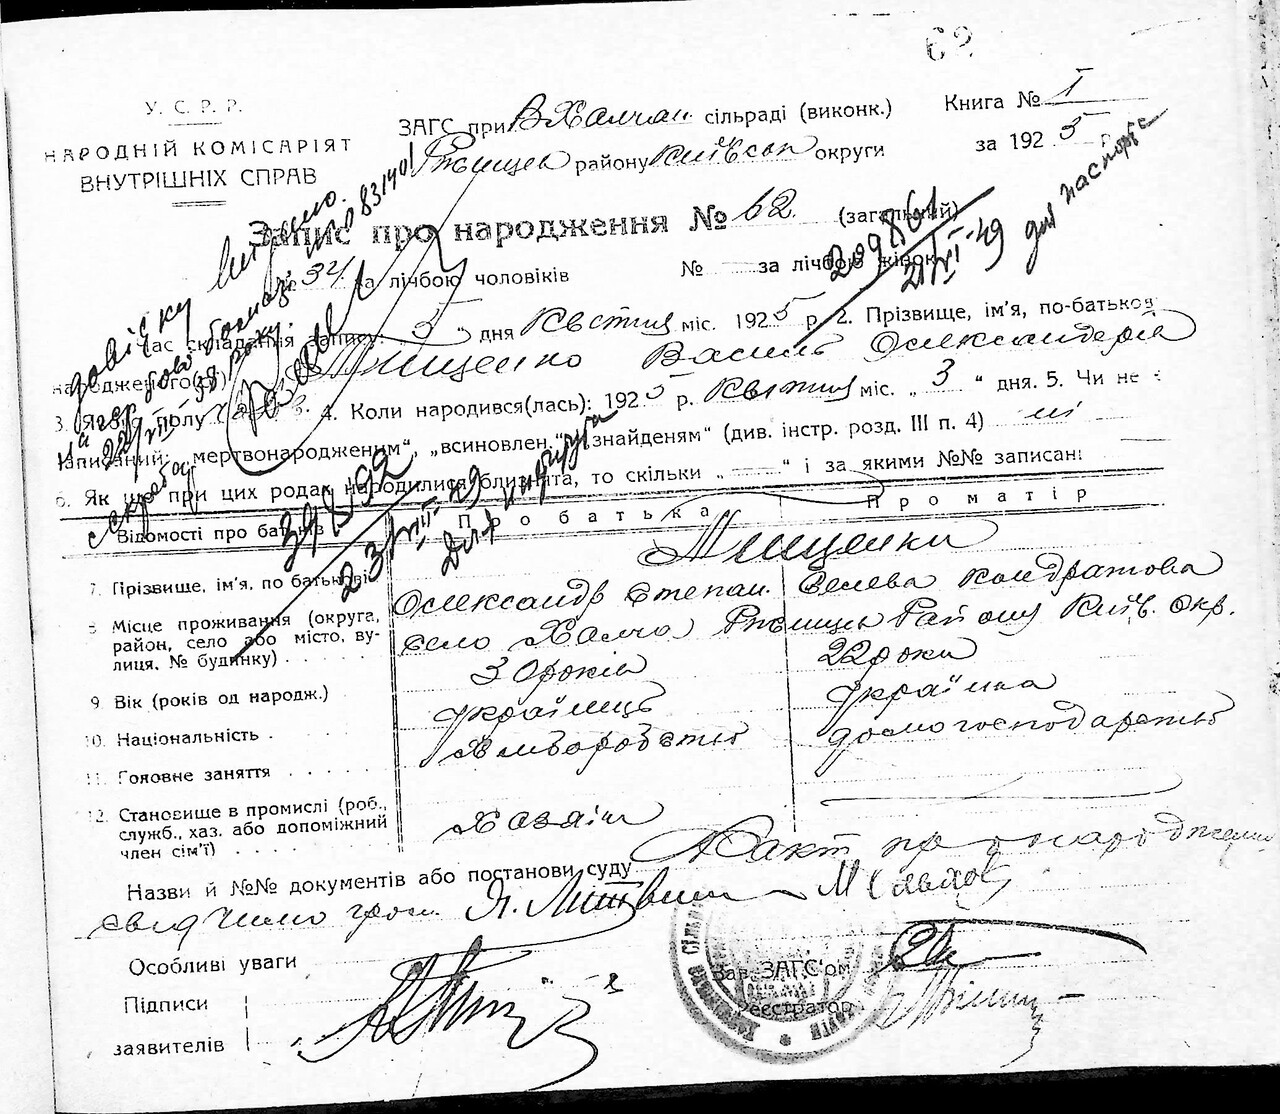 62
У. С. Р. Р.
НАРОДНІЙ КОМІСАРІЯТ
ВНУТРІШНІХ СПРАВ
ЗАГС при В Халчан. сільраді (виконк.)
Ржищев району Київськ округи
Книга № I
за 1925 р.
Запис про народження № 62. (загальний)
№ 34 за лічбою чоловіків № — за лічбою жінок
Час складання запису: 5 " дня Квітня міс. 1925 р. 2. Прізвище, ім'я, по-батькові
народженого(ої) Мищенко Василь Олександерів
3. Якого полу 4. Коли народився(лась): 1925 р. Квітня міс. „ 3 " дня. 5. Чи не є
записаний: „мертвонародженим", „всиновлен." „знайденям" (див. інстр. розд. III п. 4) ні
6. Як що при цих родах народилися близнята, то скільки „ — " і за якими №№ записані
Відомості про батьків Про батька Про матір
Мищенки
7. Прізвище, ім'я, по батькові Олександр Степан. Велева Кондратова
8 Місце проживання (округа, район, село або місто, вулиця, № будинку) село Халча, Ржищев Району Київ. окр.
9 Вік (років од народж.) 30 років 22 роки
10. Національність Українець Українка
11. Головне заняття Хліборобство домогосподарство
12. Становище в промислі (роб., служб., хаз. або допоміжний член сім'ї) Хазяін
Назви й №№ документів або постанови суду Факт про народження
свідчили гром. Литвин М
Особливі уваги
Підписи
заявителів
Зав. ЗАГС'ом
Реєстратор
довідку
22/VIII
209861
21/VI-49
для паспорта
23/VIII-49